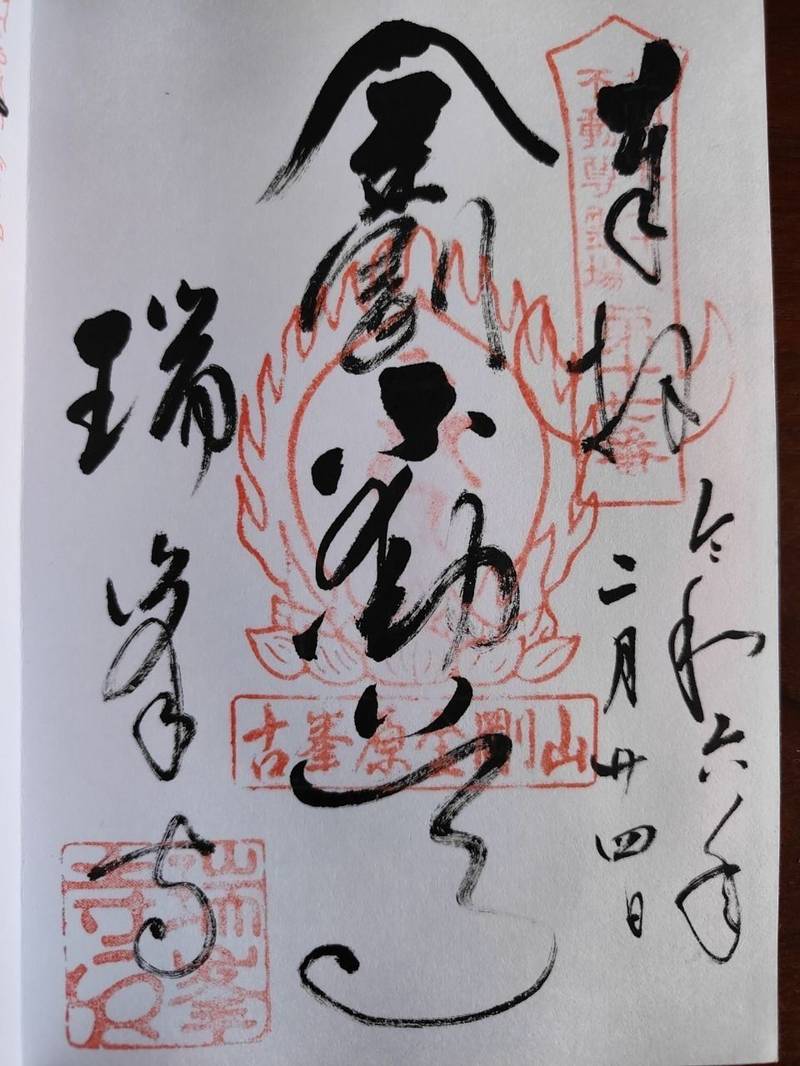 奉拝
令和六年
二月廿四日
不動尊霊場
金剛不動尊
古峯原金剛山
瑞峯寺